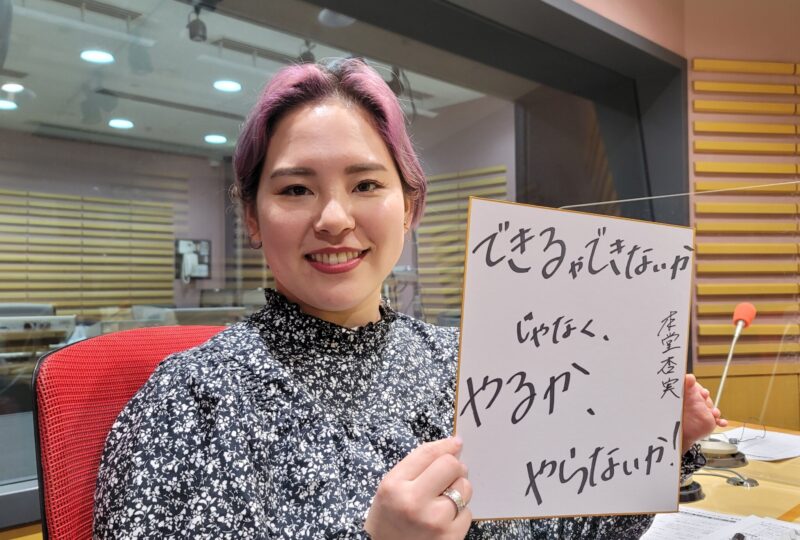 できるかできないか
じゃなく、
やるか、
やらないか!
杏実